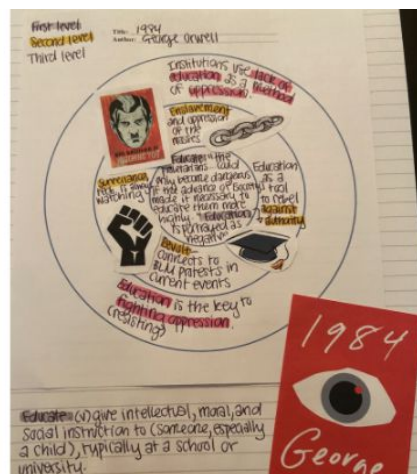 First level
Second level
Third level
Title: 1984
Author: George Orwell
Institutions use lack of
education as a method
of oppression.
Enslavement
and oppression
of the
masses
BIG BROTHER IS
WATCHING YOU
Surveillance
watching
Educate "the
only become dangerous
if the advance of
made it necessary to
educate them more
highly." Education
is portrayed as
negative
Education
as a
tool
to rebel
against
authority
Revolt
connects to
BLM protests in
current events
Education is the key to
fighting oppression.
(resisting)
1984
George
Educate (v) give intellectual, moral, and
social instruction to (someone, especially
a child), typically at a school or
university.